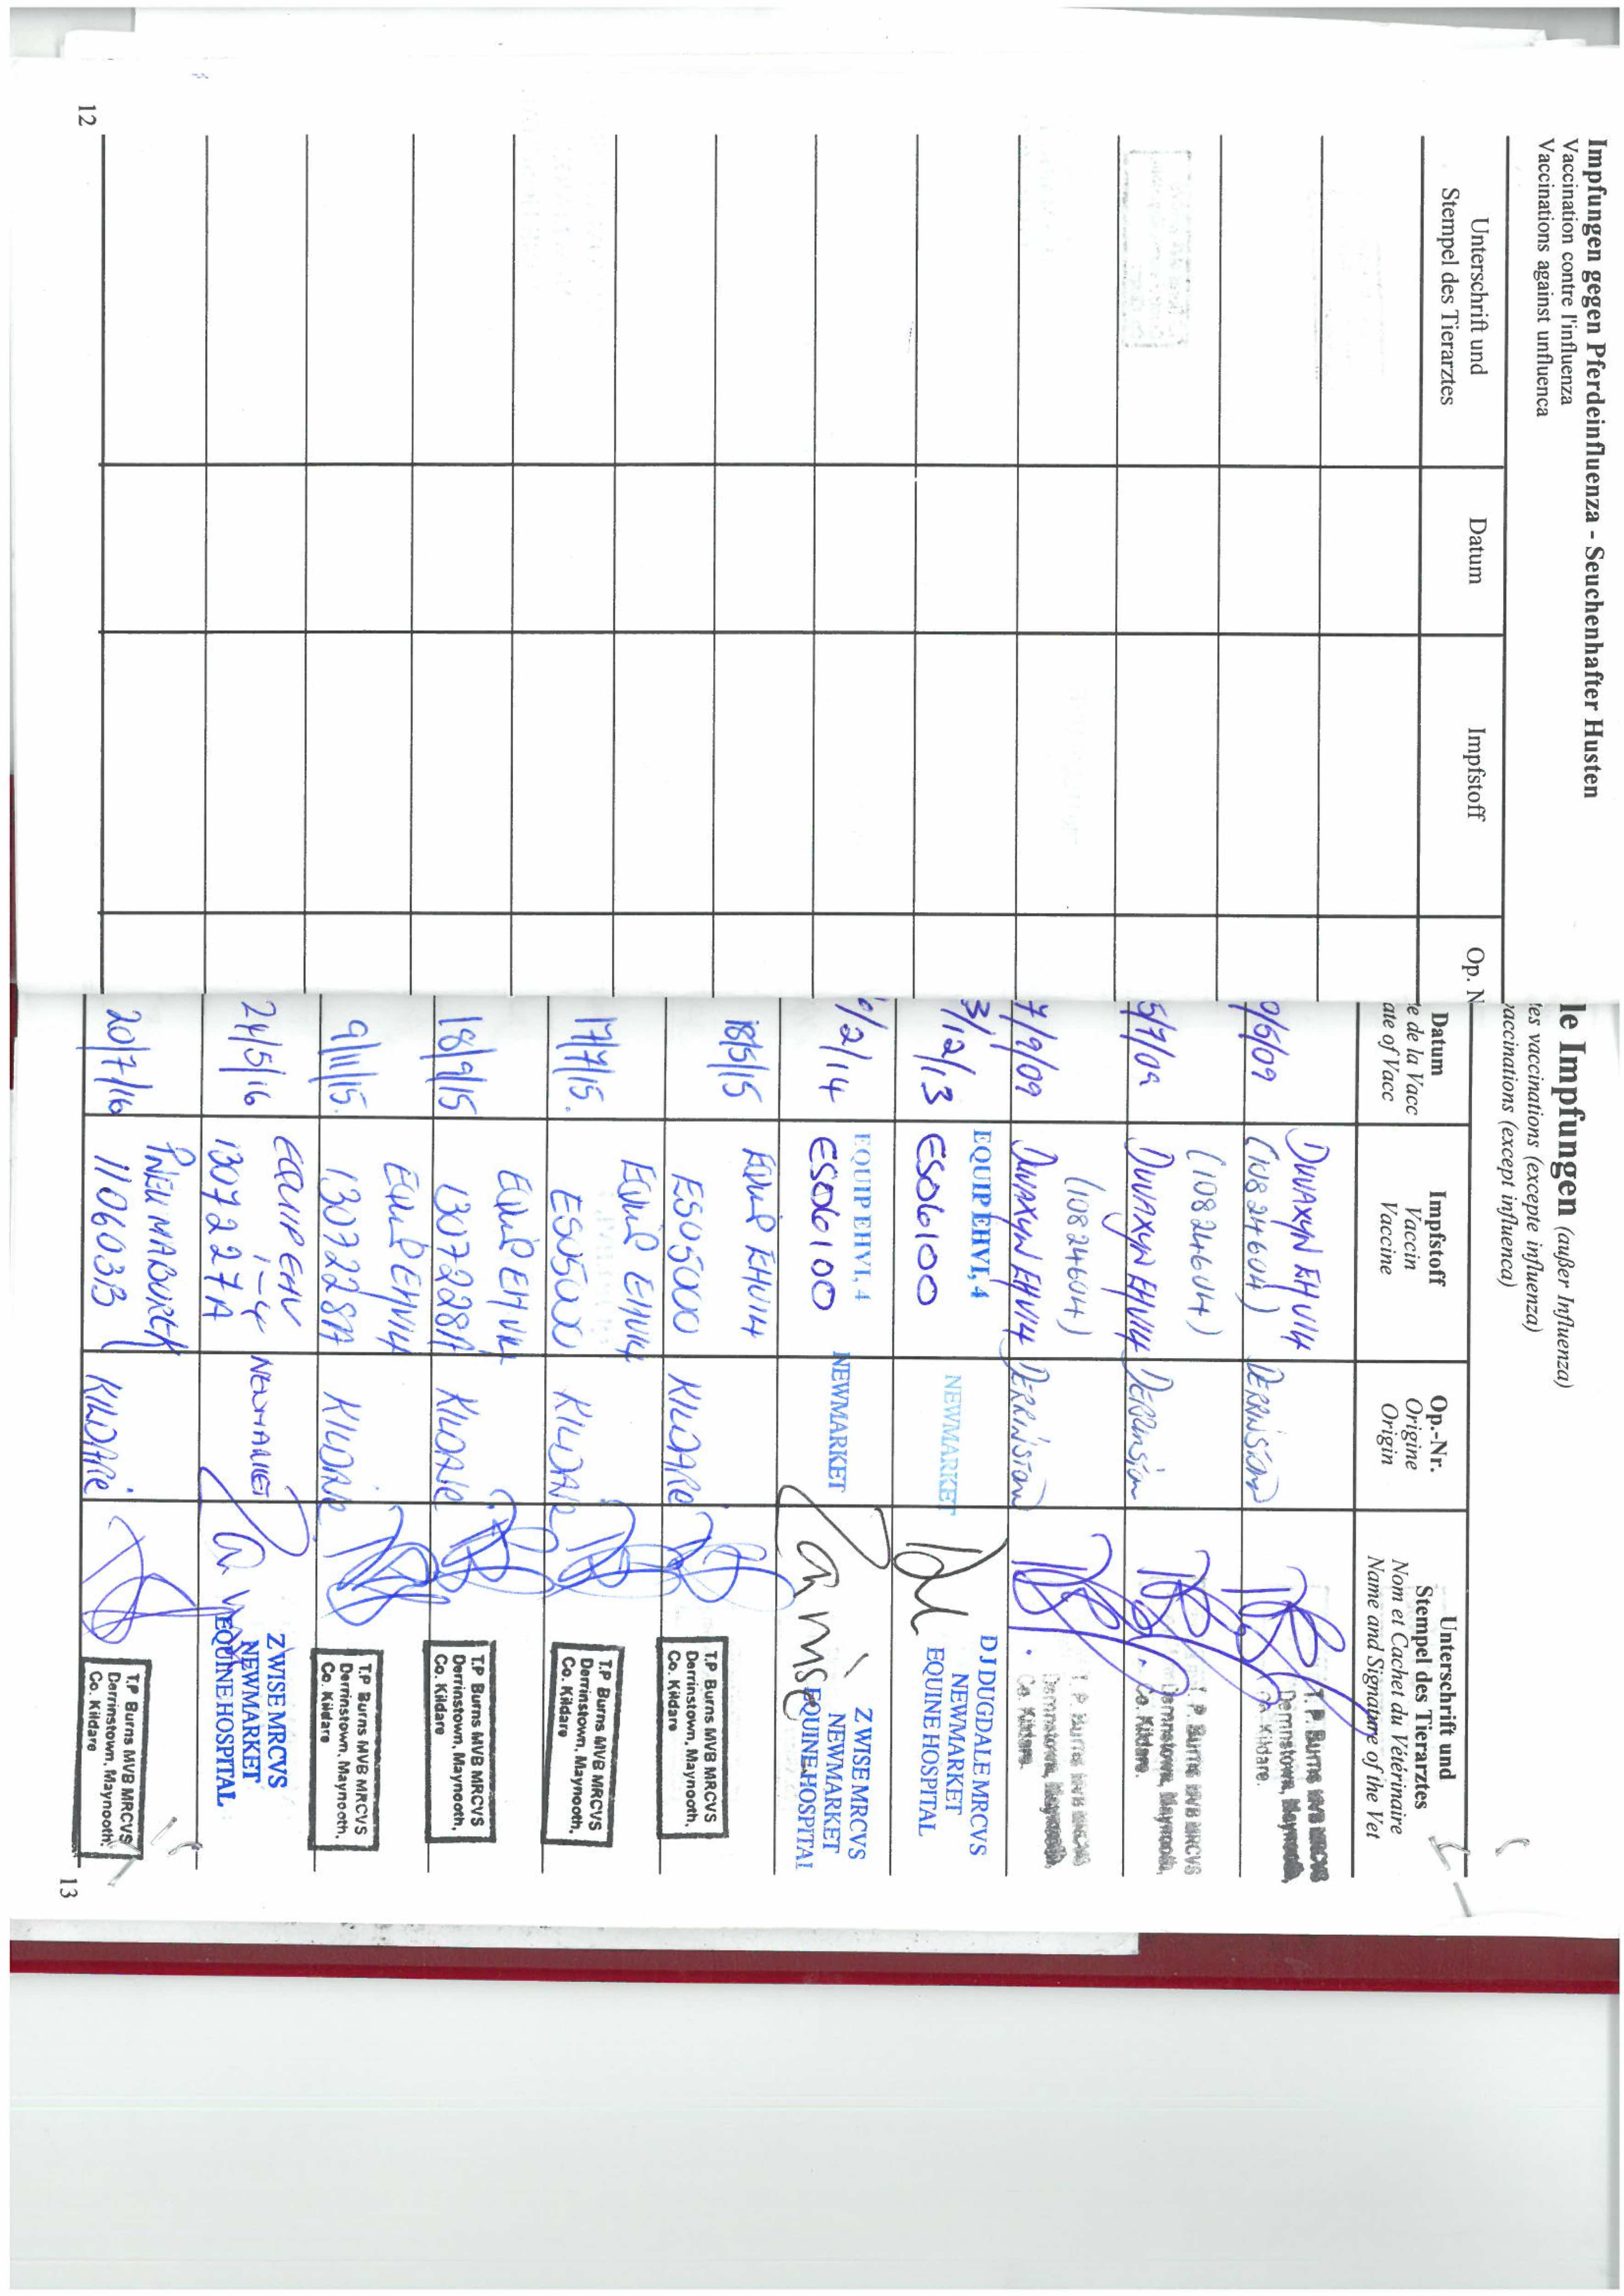 Impfungen gegen Pferdeinfluenza - Seuchenhafter Husten
Vaccination contre l'influenza
Vaccinations against unfluenca
Unterschrift und
Stempel des Tierarztes
Datum
Impfstoff
Op. N
12
le Impfungen (außer Influenza)
tes vaccinations (excepte influenza)
vaccinations (except influenca)
Datum
te de la Vacc
ate of Vacc
Impfstoff
Vaccin
Vaccine
Op.-Nr.
Origine
Origin
Unterschrift und
Stempel des Tierarztes
Nom et Cachet du Vétérinaire
Name and Signature of the Vet
DUVAXYN EHV14
T. P. Burns MVB MRCVS
Derrinstown, Maynooth,
Co. Kildare.
(10824604)
5/7/09
DUVAXYN EHV14
T. P. Burns MVB MRCVS
Derrinstown, Maynooth,
Co. Kildare.
(10824604)
7/9/09
DUVAXYN EHV14
T. P. Burns MVB MRCVS
Derrinstown, Maynooth,
Co. Kildare.
3/12/13
EQUIP EHV1,4
ES06100
NEWMARKET
DJ DUGDALE MRCVS
NEWMARKET
EQUINE HOSPITAL
/2/14
EQUIP EHV1, 4
ES06100
NEWMARKET
Z WISE MRCVS
NEWMARKET
EQUINE HOSPITAL
18/5/15
EQUIP EHV14
ES05000
KILDARE
T.P Burns MVB MRCVS
Derrinstown, Maynooth,
Co. Kildare
17/7/15.
EQUIP EHV14
ES05000
KILDARE
T.P Burns MVB MRCVS
Derrinstown, Maynooth,
Co. Kildare
18/9/15
EQUIP EHV14
1307228A
KILDARE
T.P Burns MVB MRCVS
Derrinstown, Maynooth,
Co. Kildare
9/11/15.
EQUIP EHV14
1307228A
KILDARE
T.P Burns MVB MRCVS
Derrinstown, Maynooth,
Co. Kildare
24/5/16
EQUIP EHV
1-4
1307227A
NEWMARKET
Z WISE MRCVS
NEWMARKET
EQUINE HOSPITAL
20/7/16
PNEUMABORT K
1106031B
KILDARE
T.P Burns MVB MRCVS
Derrinstown, Maynooth,
Co. Kildare
13